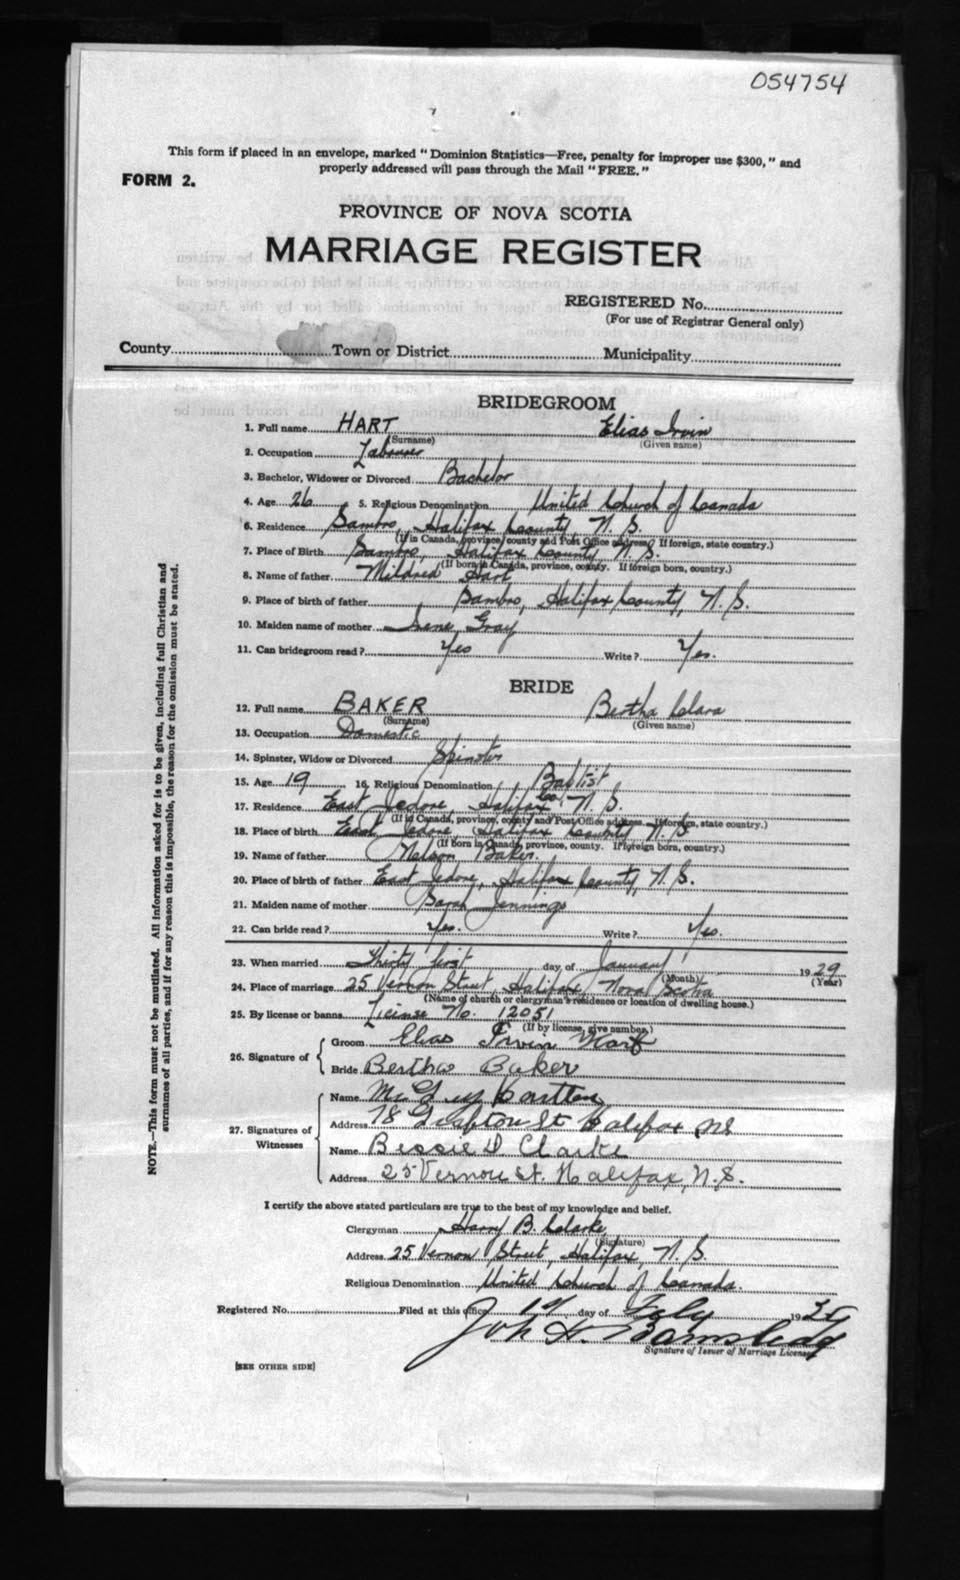 054754
This form if placed in an envelope, marked "Dominion Statistics—Free, penalty for improper use $300," and
properly addressed will pass through the Mail "FREE."
FORM 2.
PROVINCE OF NOVA SCOTIA
MARRIAGE REGISTER
REGISTERED No.
(For use of Registrar General only)
County Town or District Municipality
BRIDEGROOM
1. Full name HART Elias Irvin
(Surname) (Given name)
2. Occupation Labourer
3. Bachelor, Widower or Divorced Bachelor
4. Age 26 5. Religious Denomination United Church of Canada
6. Residence Sambro, Halifax County, N. S.
(If in Canada, province, county and Post Office address. If foreign, state country.)
7. Place of Birth Sambro, Halifax County N. S.
(If born in Canada, province, county. If foreign born, country.)
8. Name of father Mildred Hart
9. Place of birth of father Sambro, Halifax County, N. S.
10. Maiden name of mother Irene Gray
11. Can bridegroom read? Yes Write? Yes.
BRIDE
12. Full name BAKER Bertha Clara
(Surname) (Given name)
13. Occupation Domestic
14. Spinster, Widow or Divorced Spinster
15. Age 19 16. Religious Denomination Baptist
17. Residence East Jedore, Halifax Co. N. S.
(If in Canada, province, county and Post Office address. If foreign, state country.)
18. Place of birth East Jedore Halifax County N. S
(If born in Canada, province, county. If foreign born, country.)
19. Name of father Nelson Baker.
20. Place of birth of father East Jedore, Halifax County, N. S.
21. Maiden name of mother Sarah Jennings
22. Can bride read? Yes. Write? Yes.
23. When married Thirty first day of January 1929
(Month) (Year)
24. Place of marriage 25 Vernon Street, Halifax, Nova Scotia
(Name of church or clergyman's residence or location of dwelling house.)
25. By license or banns License No. 12051
(If by license, give number)
26. Signature of Groom Elias Irvin Hart
Bride Bertha Baker
27. Signatures of Witnesses Name
Address 78 Grafton St Halifax NS
Name Bessie D Clarke
Address 25 Vernon St. Halifax, N. S.
I certify the above stated particulars are true to the best of my knowledge and belief.
Clergyman Harry B. Clarke
(Signature)
Address 25 Vernon Street, Halifax, N. S.
Religious Denomination United Church of Canada.
Registered No. Filed at this office day of 19
Signature of Issuer of Marriage Licenses
[SEE OTHER SIDE]
NOTE.—This form must not be mutilated. All information asked for is to be given, including full Christian and
surnames of all parties, and if for any reason this is impossible, the reason for the omission must be stated.